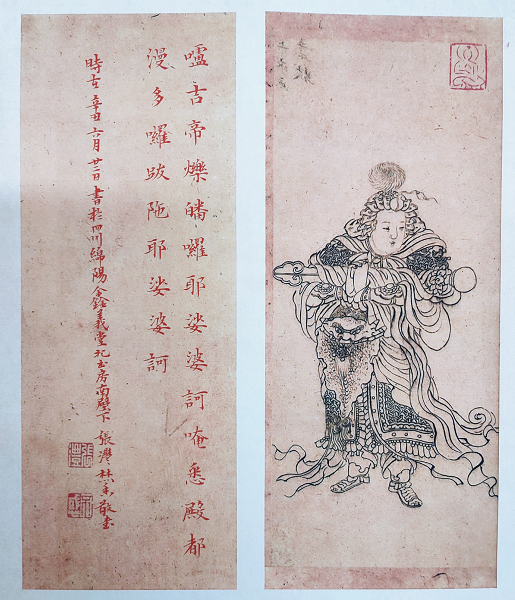 嚧吉帝爍皤囉耶娑婆訶唵悉殿都
漫多囉跋陁耶娑婆訶
時在辛丑六月廿二日書於四川綿陽鑫義堂北書房南壁下 張 林 敬書